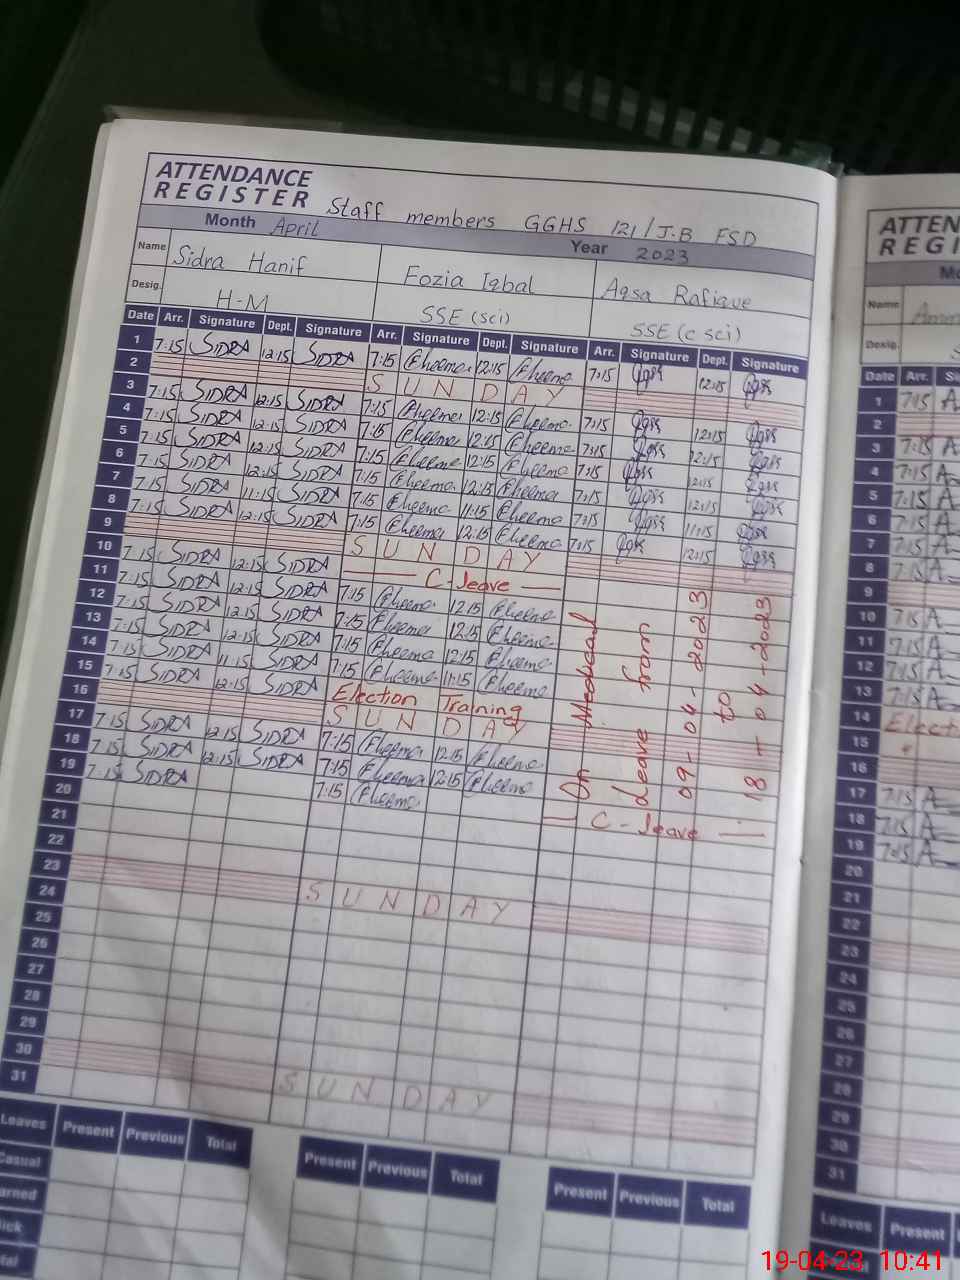 ATTENDANCE
REGISTER Staff members GGHS 121/J.B FSD
Month April Year 2023
Name Sidra Hanif Fozia Iqbal Aqsa Rafique
Desig. H-M SSE (sci) SSE (c sci)
Date Arr. Signature Dept. Signature Arr. Signature Dept. Signature Arr. Signature Dept. Signature
1 7:15 SIDRA 12:15 SIDRA 7:15 Cheema 12:15 Cheema 7:15 12:15
2 SUNDAY
3 7:15 SIDRA 12:15 SIDRA 7:15 Cheema 12:15 Cheema 7:15 12:15
4 7:15 SIDRA 12:15 SIDRA 7:15 Cheema 12:15 Cheema 7:15 12:15
5 7:15 SIDRA 12:15 SIDRA 7:15 Cheema 12:15 Cheema 7:15 12:15
6 7:15 SIDRA 12:15 SIDRA 7:15 Cheema 12:15 Cheema 7:15 12:15
7 7:15 SIDRA 11:15 SIDRA 7:15 Cheema 11:15 Cheema 7:15 11:15
8 7:15 SIDRA 12:15 SIDRA 7:15 Cheema 12:15 Cheema 7:15 12:15
9 SUNDAY
10 7:15 SIDRA 12:15 SIDRA C-leave
11 7:15 SIDRA 12:15 SIDRA 7:15 Cheema 12:15 Cheema
12 7:15 SIDRA 12:15 SIDRA 7:15 Cheema 12:15 Cheema
13 7:15 SIDRA 12:15 SIDRA 7:15 Cheema 12:15 Cheema
14 7:15 SIDRA 11:15 SIDRA 7:15 Cheema 11:15 Cheema
15 7:15 SIDRA 12:15 SIDRA Election Training
16 SUNDAY
17 7:15 SIDRA 12:15 SIDRA 7:15 Cheema 12:15 Cheema
18 7:15 SIDRA 12:15 SIDRA 7:15 Cheema 12:15 Cheema
19 7:15 SIDRA 7:15 Cheema C-leave
On
Leave from
09-04-2023
to
18-04-2023
20
21
22
23 SUNDAY
24
25
26
27
28
29
30 SUNDAY
31
Leaves Present Previous Total Present Previous Total Present Previous Total
Casual
arned
ick
tal
ATTEN
REGI
Name
Desig.
Date Arr.
1 7:15 A
2
3 7:15 A
4 7:15 A
5 7:15 A
6 7:15 A
7 7:15 A
8 7:15 A
9
10 7:15 A
11 7:15 A
12 7:15 A
13 7:15 A
14 Electi
15
16
17 7:15 A
18 7:15 A
19 7:15 A
20
21
22
23
24
25
26
27
28
29
30
31
Leaves Present
19-04-23 10:41